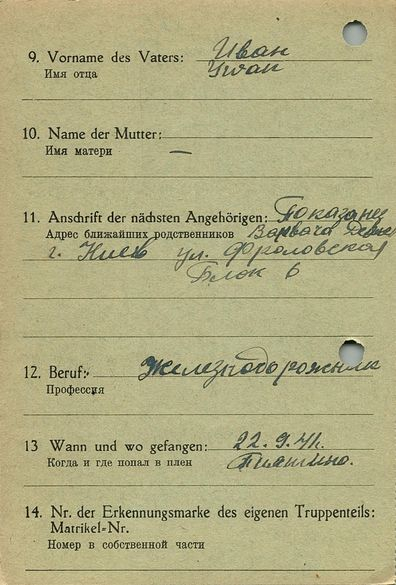 9. Vorname des Vaters: Иван
Имя отца Iwan
10. Name der Mutter:
Имя матери —
11. Anschrift der nächsten Angehörigen:
Адрес ближайших родственников
г. Киев ул. Фроловская
Блок 6
12. Beruf: Железнодорожник
Профессия
13 Wann und wo gefangen: 22. 9. 41.
Когда и где попал в плен
14. Nr. der Erkennungsmarke des eigenen Truppenteils:
Matrikel-Nr.
Номер в собственной части